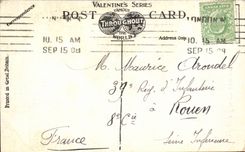 VALENTINE'S SERIES
FAMOUS
THROUGHOUT
THE
WORLD
POST CARD.
Correspondence
Address Only
10. 15 AM
SEP 15 09
10. 15 AM
SEP 15 09
Printed in Great Britain.
M. Maurice Arondel
37e Reg. d'Infanterie
8e Cie
Rouen
France
Seine Inférieure